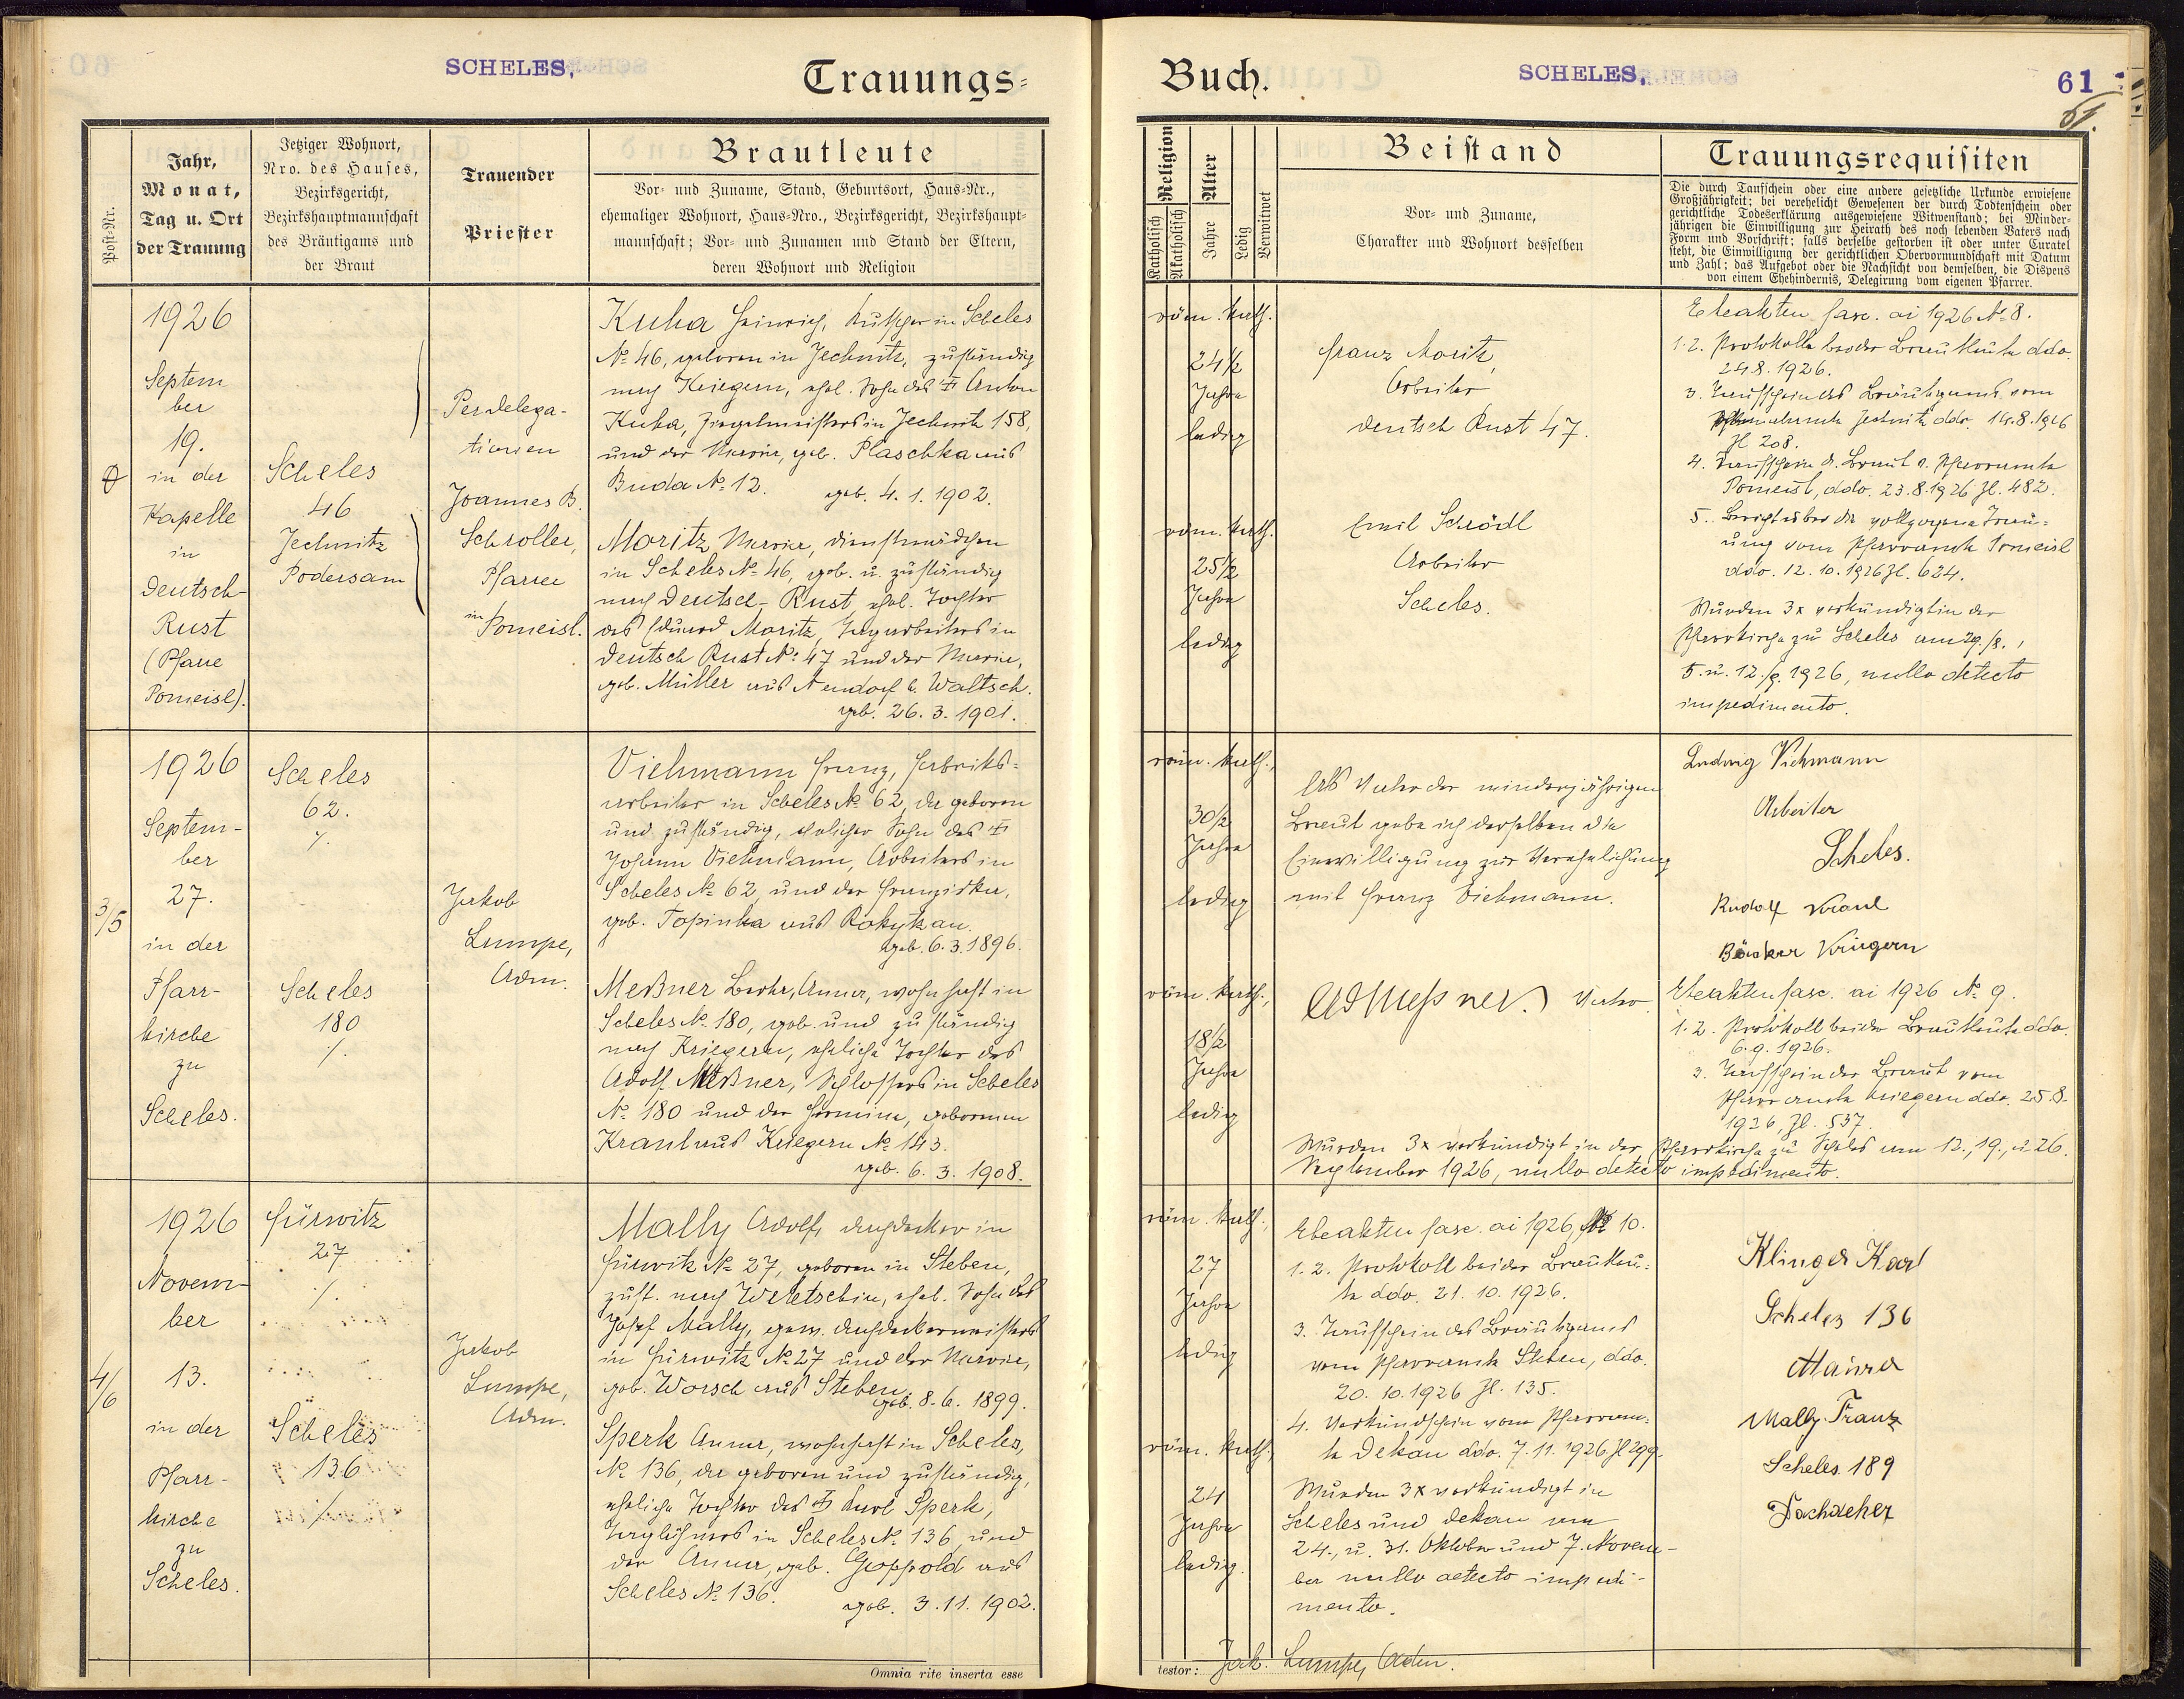 SCHELES.
Trauungs=
Post-Nr.
Jahr,
Monat,
Tag u. Ort
der Trauung
Jetziger Wohnort,
Nro. des Hauses,
Bezirksgericht,
Bezirkshauptmannschaft
des Bräutigams und
der Braut
Trauender
Priester
Brautleute
Vor- und Zuname, Stand, Geburtsort, Haus-Nr.,
ehemaliger Wohnort, Haus-Nro., Bezirksgericht, Bezirkshaupt-
mannschaft; Vor- und Zunamen und Stand der Eltern,
deren Wohnort und Religion
1926
Septem
ber
19.
in der
Kapelle
in
Deutsch-
Rust
(Pfarre
Pomeisl).
Scheles
46
Jechnitz
Podersam
Per delega-
tionem
Joannes B.
Schroller,
Pfarrer
in Pomeisl.
Kuha Heinrich, Kutscher in Scheles
No 46, geboren in Jechnitz, zuständig
nach Kriegern, ehel. Sohn des Anton
Kuha, Ziegelmeisters in Jechnitz 158,
und der Marie, geb. Plaschka aus
Buda No 12. geb. 4. 1. 1902.
Moritz Marie, Dienstmädchen
in Scheles No 46, geb. u. zuständig
nach Deutsch-Rust, ehel. Tochter
des Eduard Moritz, Tagarbeiters in
Deutsch Rust No 47 und der Marie,
geb. Müller aus Neudorf b. Waltsch.
geb. 26. 3. 1901.
3/5
1926
Septem-
ber
27.
in der
Pfarr-
kirche
zu
Scheles.
Scheles
62.
Scheles
180
Jakob
Lumpe,
Adm.
Viehmann Franz, Fabriks-
arbeiter in Scheles No 62, da geboren
und zuständig, ehelicher Sohn des
Johann Viehmann, Arbeiters in
Scheles No 62, und der Franziska,
geb. Topinka aus Rokytzan.
geb. 6. 3. 1896.
Meßner Berta, Anna, wohnhaft in
Scheles No 180, geb. und zuständig
nach Kriegern, eheliche Tochter des
Adolf Meßner, Schlossers in Scheles
No 180 und der Hermine, geborenen
Kraul aus Kriegern No 143.
geb. 6. 3. 1908.
4/6
1926
Novem-
ber
13.
in der
Pfarr-
kirche
zu
Scheles.
Fürwitz
27
Scheles
136
Jakob
Lumpe,
Adm.
Mally Adolf, Dachdecker in
Fürwitz No 27, geboren in Steben,
zust. nach Weletschin, ehel. Sohn des
Josef Mally, gew. Dachdeckermeisters
in Fürwitz No 27 und der Marie,
geb. Worsch aus Steben.
geb. 8. 6. 1899.
Sperk Anna, wohnhaft in Scheles,
No 136, da geboren und zuständig,
eheliche Tochter des Karl Sperk,
Taglöhners in Scheles No 136 und
der Anna, geb. Goppold aus
Scheles No 136.
geb. 3. 11. 1902.
Omnia rite inserta esse
Buch.
SCHELES.
61
61.
Religion
Katholisch
Akatholisch
Alter
Jahre
Ledig
Verwitwet
Beistand
Vor- und Zuname,
Charakter und Wohnort desselben
Trauungsrequisiten
Die durch Taufschein oder eine andere gesetzliche Urkunde erwiesene
Großjährigkeit; bei verehelicht Gewesenen der durch Todtenschein oder
gerichtliche Todeserklärung ausgewiesene Witwenstand; bei Minder-
jährigen die Einwilligung zur Heirath des noch lebenden Vaters nach
Form und Vorschrift; falls derselbe gestorben ist oder unter Curatel
steht, die Einwilligung der gerichtlichen Obervormundschaft mit Datum
und Zahl; das Aufgebot oder die Nachsicht von demselben, die Dispens
von einem Ehehindernis, Delegirung vom eigenen Pfarrer.
röm. kath.
24 1/2
Jahre
ledig
röm. kath.
25 1/2
Jahre
ledig
Franz Moritz,
Arbeiter
Deutsch Rust 47.
Emil Schrödl
Arbeiter
Scheles.
Eheakten fasc. ai 1926 No 8.
1. 2. Protokolle beider Brautleute ddo.
24.8. 1926.
3. Taufschein des Bräutigams vom
Pfarramte Jechnitz ddo. 14.8.1926
Zl. 208.
4. Taufschein d. Braut v. Pfarramte
Pomeisl, ddo. 23.8.1926 Zl. 482.
5. Bericht über die vollzogene Trau-
ung vom Pfarramte Pomeisl
ddo. 12. 10. 1926 Zl. 624.
Wurden 3x verkündigt in der
Pfarrkirche zu Scheles am 29./8.,
5. u. 12./9. 1926, nullo detecto
impedimento.
röm. kath.,
30 1/2
Jahre
ledig
röm. kath.,
18 1/2
Jahre
ledig
Als Vater der minderjährigen
Braut gebe ich derselben die
Einwilligung zur Verehelichung
mit Franz Viehmann.
Ad Meßner Vater
Ludwig Viehmann
Arbeiter
Scheles.
Rudolf Kraul
Bäcker Kriegern
Eheakten fasc. ai 1926 No 9.
1. 2. Protokoll beider Brautleute ddo.
6. 9. 1926.
3. Taufschein der Braut vom
Pfarramte Kriegern ddo. 25.8.
1926, Zl. 537.
Wurden 3x verkündigt in der Pfarrkirche zu Scheles am 12., 19., u. 26.
September 1926, nullo detecto impedimento.
röm. kath.,
27
Jahre
ledig
röm. kath.,
24
Jahre
ledig.
Eheakten fasc. ai 1926, No 10.
1. 2. Protokoll beider Brautleu-
te ddo. 21. 10. 1926.
3. Taufschein des Bräutigams
vom Pfarramte Steben, ddo.
20. 10. 1926 Zl. 135.
4. Verkündschein vom Pfarram-
te Dekau ddo. 7. 11. 1926, Zl 299.
Wurden 3x verkündigt in
Scheles und Dekau am
24., u. 31. Oktober und 7. Novem-
ber nullo detecto impedi-
mento.
Klinger Karl
Scheles 136
Maurer
Mally Franz
Scheles 189
Dachdecker
testor: Jak. Lumpe, Adm.